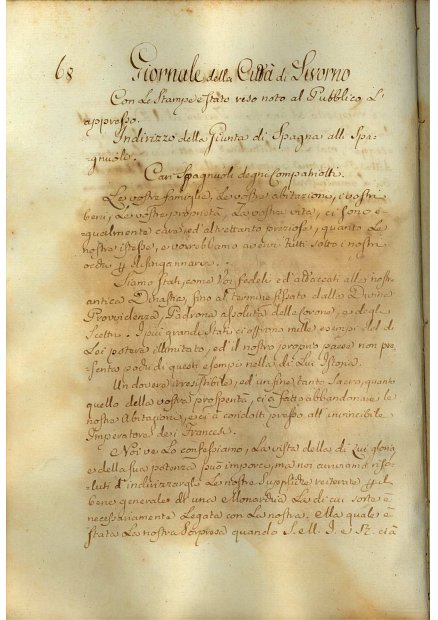 68 Giornale della Città di Livorno
Con Le Stampe è stato reso noto al Pubblico L'
appresso.
Indirizzo della Giunta di Spagna alli Spa-
gnuoli.
Cari Spagnuoli degni Compatriotti.
Le vostre famiglie, Le vostre abitazioni, i vostri
beni, Le vostre proprietà, La vostra vita, ci sono e-
gualmente care, ed altrettanto preziose, quanto Le
nostre istesse, e vorrebbamo avervi tutti sotto i nostri
occhi p disingannarvi.
Siamo stati, come Voi fedeli ed attaccati alla nostr
antica Dinastia, fino al termine fissato dalla Divina
Provvidenza, Padrona assoluta delle corone, e degli
Scettri. I più grandi Stati ci offrono mille esempi del di
Lei potere illimitato, ed il nostro proprio paese non pre
senta pochi di questi esempi nella di Lui Istoria.
Un dovere irresistibile, ed un fine tanto Sacro, quanto
quello della vostra prosperità, ci à fatto abbandonare le
nostre Abitazioni, e ci à condotti presso all'invincibile
Imperatore dei Francesi.
Noi ve Lo confessiamo, La vista della di Lui gloria
e della sua potenza può imporci, ma noi eravamo riso-
luti d'indirizzargli Le nostre Suppliche reiterate p il
bene generale di una Monarchia La di cui sorte è
necessariamente Legata con La nostra. Ma quale è
stata La nostra sorpresa quando S. M. I. e R. ci à